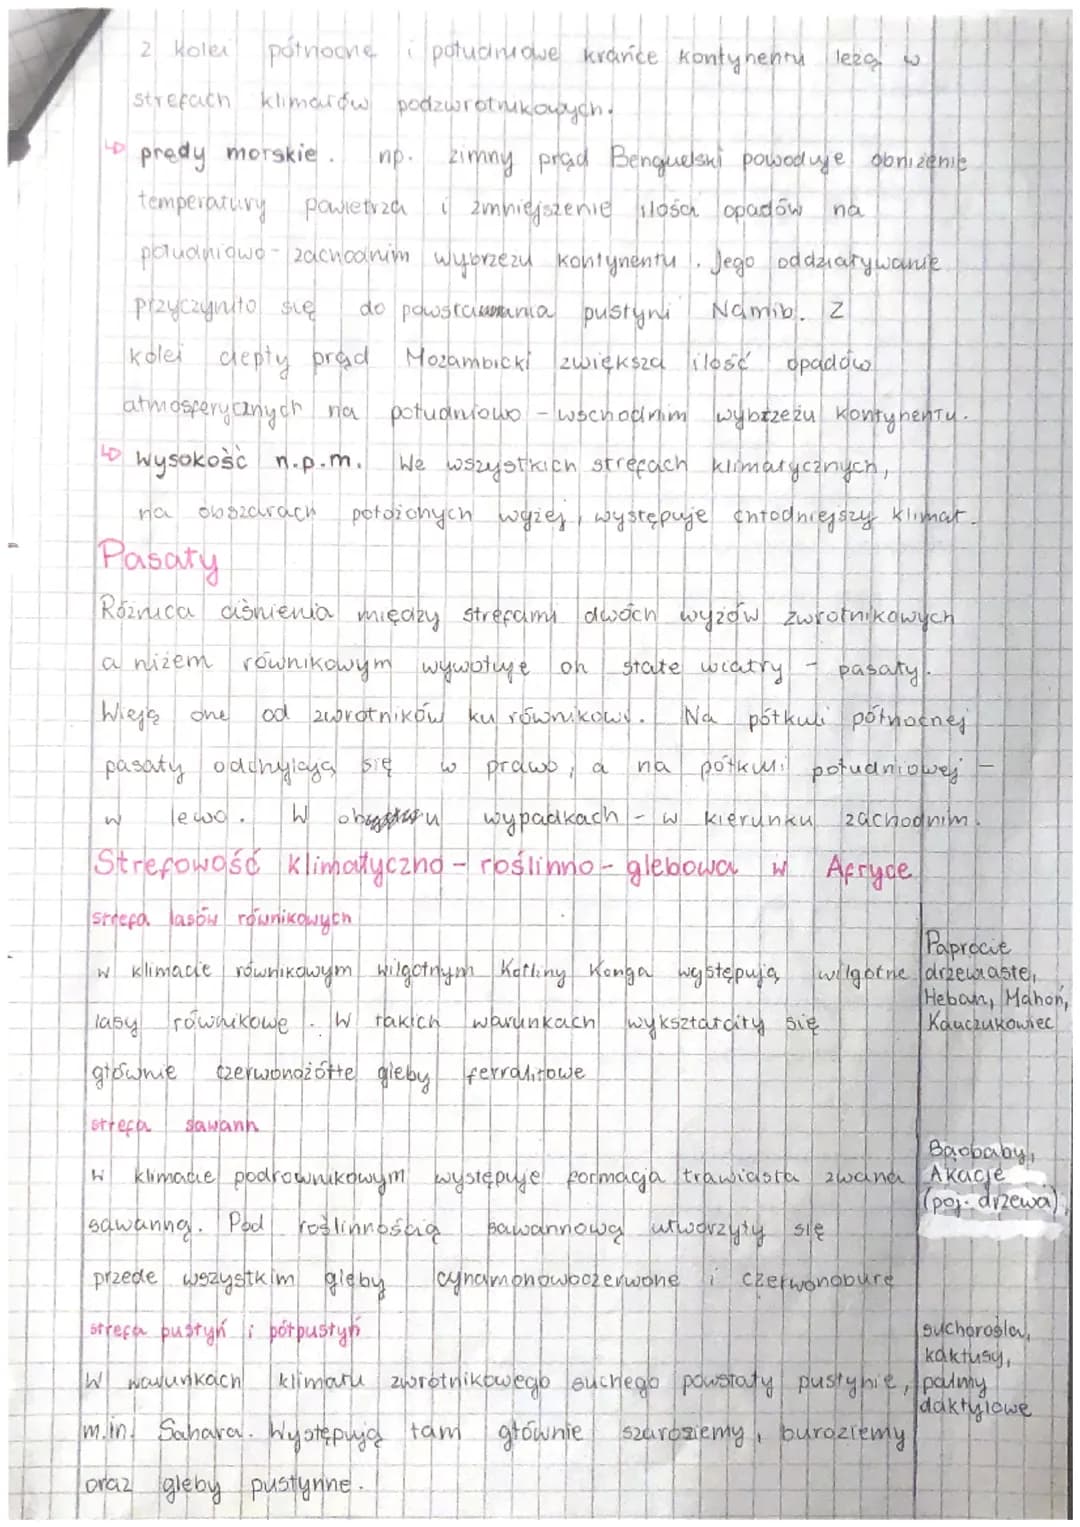 Z kolei północne i południowe krańce kontynentu leżą w
strefach klimatów podzwrotnikowych.
prądy morskie. np. zimny prąd Benguelski powoduje obniżenie
temperatury powietrza i zmniejszenie ilości opadów na
południowo-zachodnim wybrzeżu kontynentu. Jego oddziaływanie
przyczyniło się do powstawania pustyni Namib. Z
kolei ciepły prąd Mozambicki zwiększa ilość opadów
atmosferycznych na południowo-wschodnim wybrzeżu kontynentu.
wysokość n.p.m. We wszystkich strefach klimatycznych,
na obszarach położonych wyżej, występuje chłodniejszy klimat.
Pasaty
Różnica ciśnienia między strefami dwóch wyżów zwrotnikowych
a niżem równikowym wywołuje on stałe wiatry - pasaty.
Wieją one od zwrotników ku równikowi. Na półkuli północnej
pasaty odchylają się w prawo, a na półkuli południowej -
w lewo. W obu wypadkach - w kierunku zachodnim.
Strefowość klimatyczno-roślinno-glebowa w Afryce
strefa lasów równikowych
w klimacie równikowym wilgotnym Kotliny Konga występują wilgotne
lasy równikowe. W takich warunkach wykształciły się
głównie czerwonożółte gleby ferralitowe
Paprocie
drzewiaste,
Heban, Mahoń,
Kauczukowiec
strefa sawann
W klimacie podrównikowym występuje formacja trawiasta zwana
sawanną. Pod roślinnością sawannową utworzyły się
przede wszystkim gleby cynamonowoczerwone i czerwonobure
Baobaby,
Akacje
(poj. drzewa)
strefa pustyń i półpustyń
W warunkach klimatu zwrotnikowego suchego powstały pustynie,
m.in. Sahara. Występują tam głównie szaroziemy, buroziemy
oraz gleby pustynne.
suchorośla,
kaktusy,
palmy
daktylowe